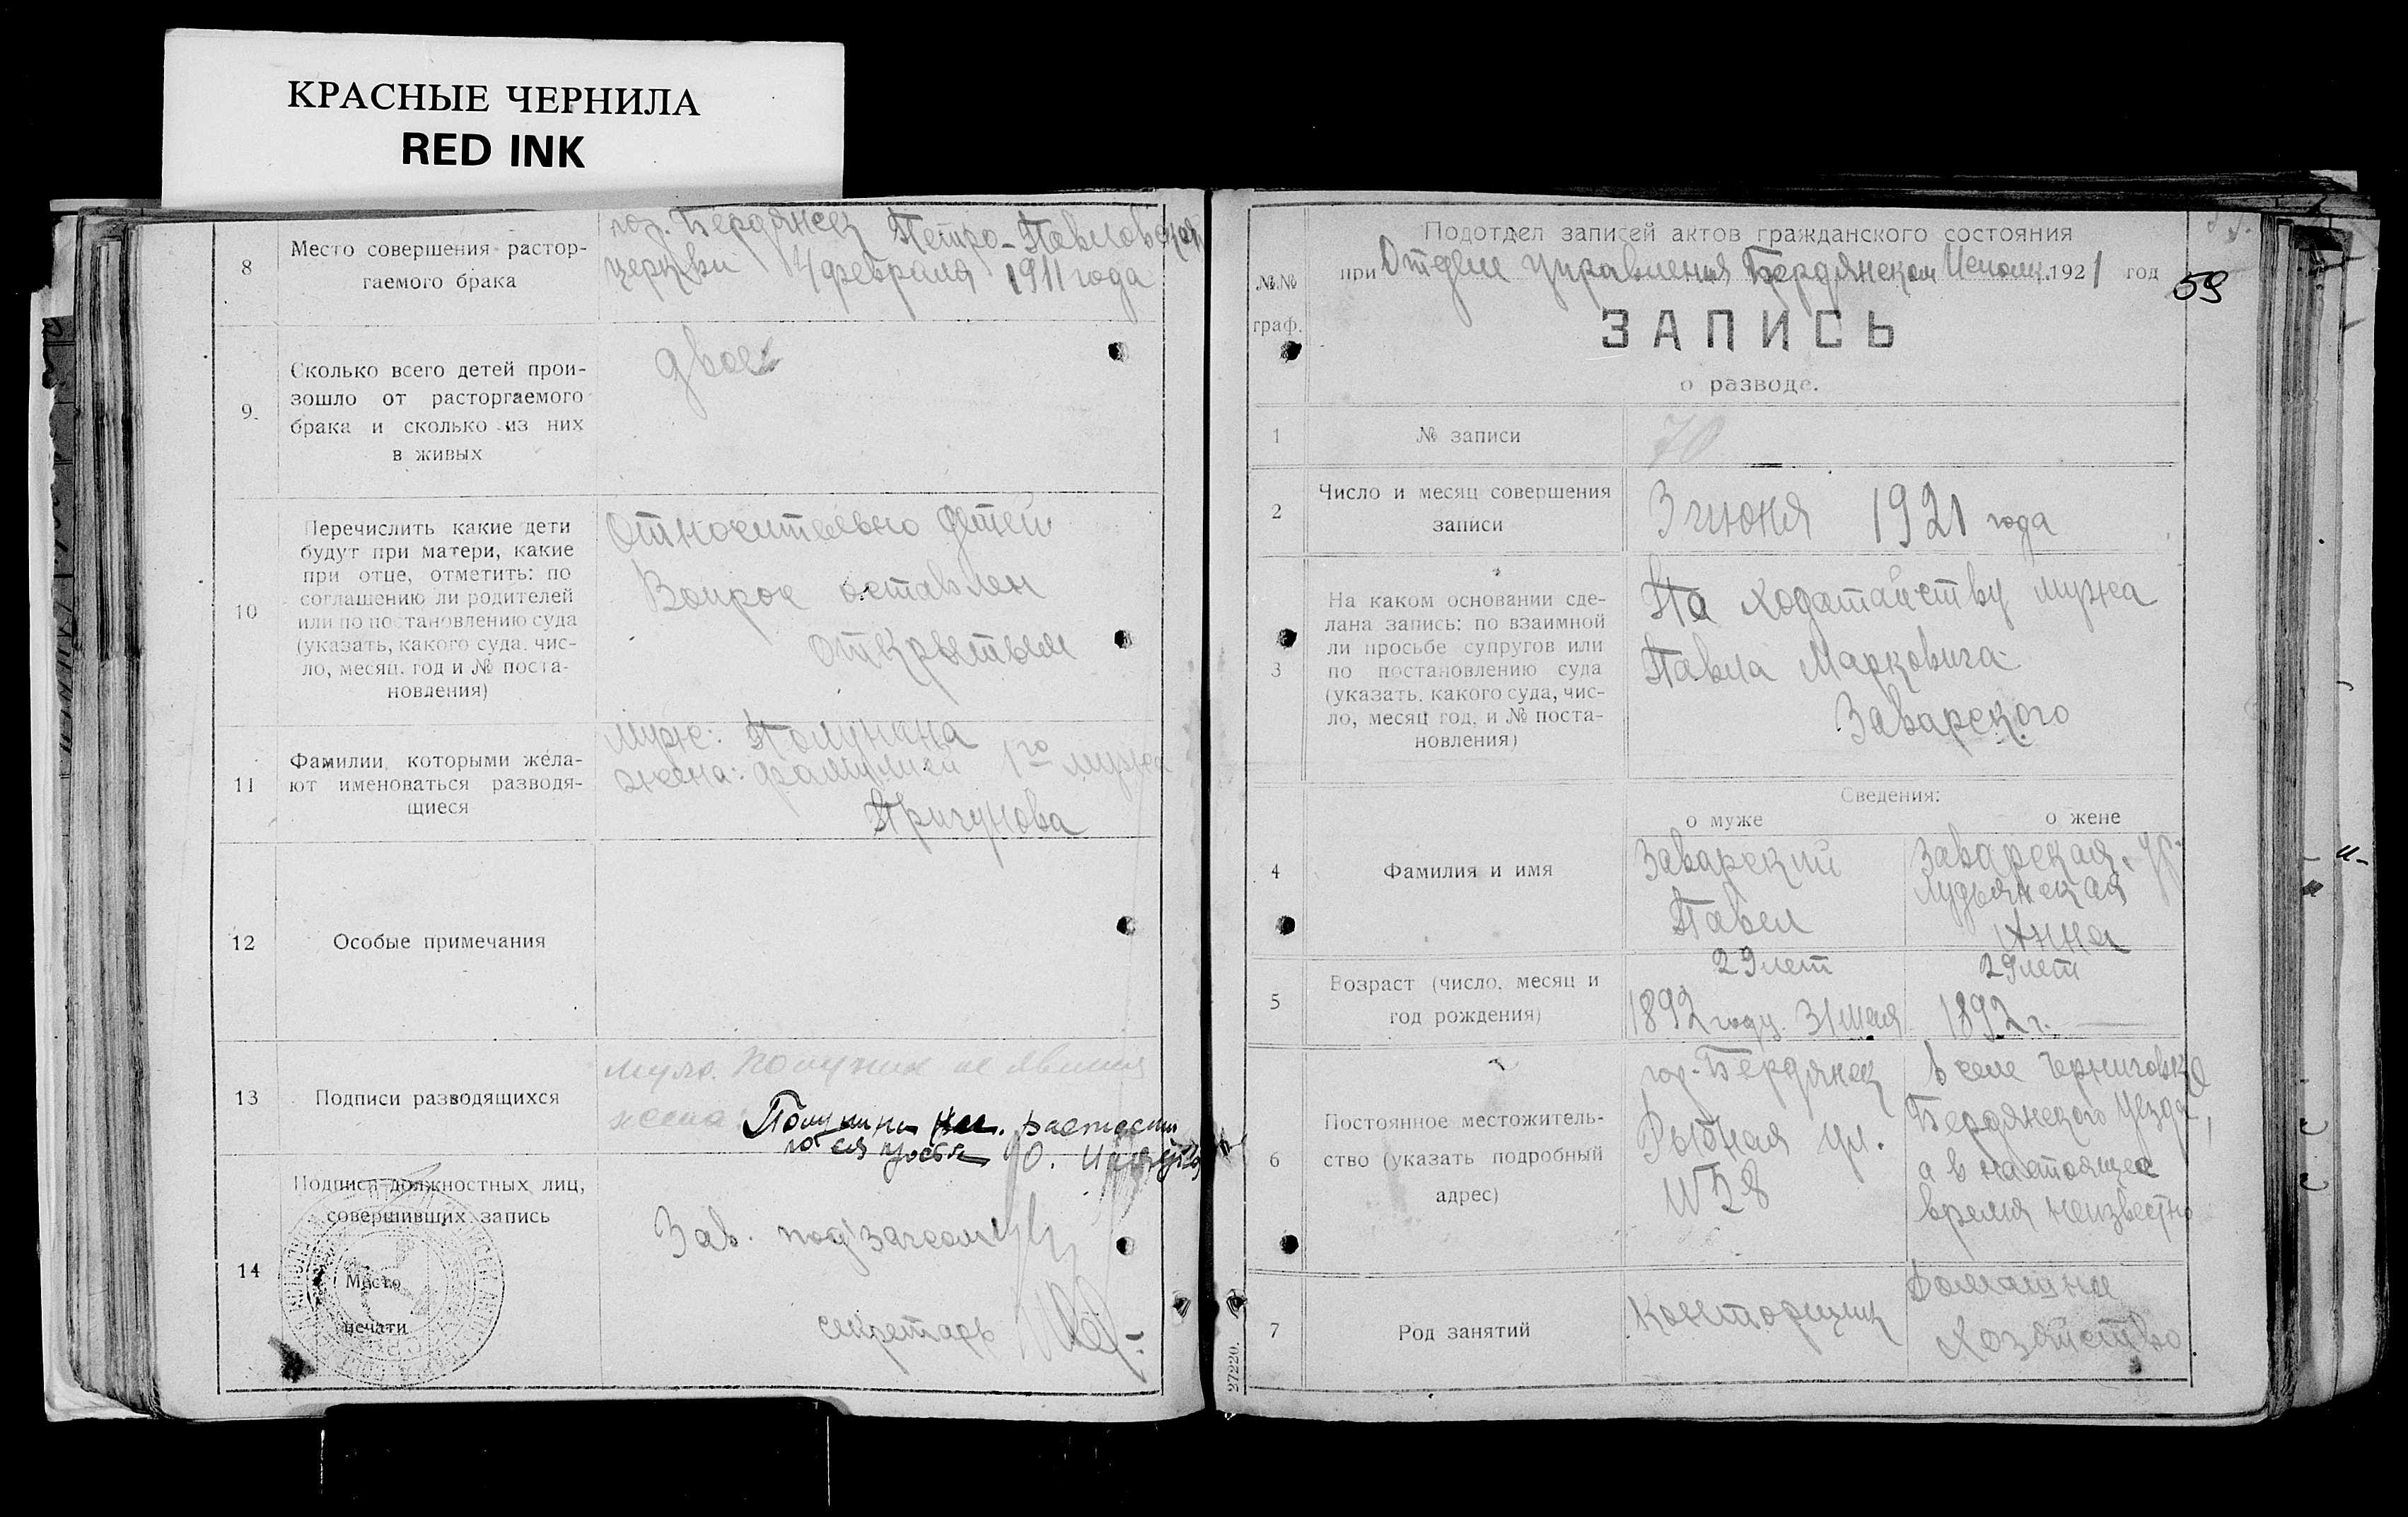 КРАСНЫЕ ЧЕРНИЛА
RED INK
8
Место совершения растор-
гаемого брака
гор. Бердянск Петро-Павловской
церкви 4 февраля 1911 года
9.
Сколько всего детей прои-
зошло от расторгаемого
брака и сколько из них
в живых
двое
10
Перечислить какие дети
будут при матери, какие
при отце, отметить: по
соглашению ли родителей
или по постановлению суда
(указать, какого суда, чис-
ло, месяц, год и № поста-
новления)
Относительно детей
Вопрос оставлен
открытым
11
Фамилии, которыми жела-
ют именоваться разводя-
щиеся
муж: Полунина
жена: фамилией 1го мужа
Пригунова
12
Особые примечания
13
Подписи разводящихся
муж. Полунин не явился
жена:
14
Подписи должностных лиц,
совершивших запись
Место
печати
Зав. под
секретарь
№№
граф.
Подотдел записей актов гражданского состояния
при Отделе Управления Бердянском Исполк. 1921 год
59
ЗАПИСЬ
о разводе.
1
№ записи
70
2
Число и месяц совершения
записи
3 июня 1921 года
3
На каком основании сде-
лана запись: по взаимной
ли просьбе супругов или
по постановлению суда
(указать, какого суда, чис-
ло, месяц год, и № поста-
новления)
По ходатайству мужа
Павла Марковича
Заварского
Сведения:
о муже
о жене
4
Фамилия и имя
Заварский
Павел
Заварская, ур.
Анна
5
Возраст (число, месяц и
год рождения)
29 лет
1892 году 31 мая
29 лет
1892 г.
6
Постоянное местожитель-
ство (указать подробный
адрес)
гор. Бердянск
Рыбная ул.
№ 28
в селе Черниговке
Бердянского Уезда,
а в настоящее
время неизвестно
7
Род занятий
Конторщик
Домашнее
Хозяйство
27220.